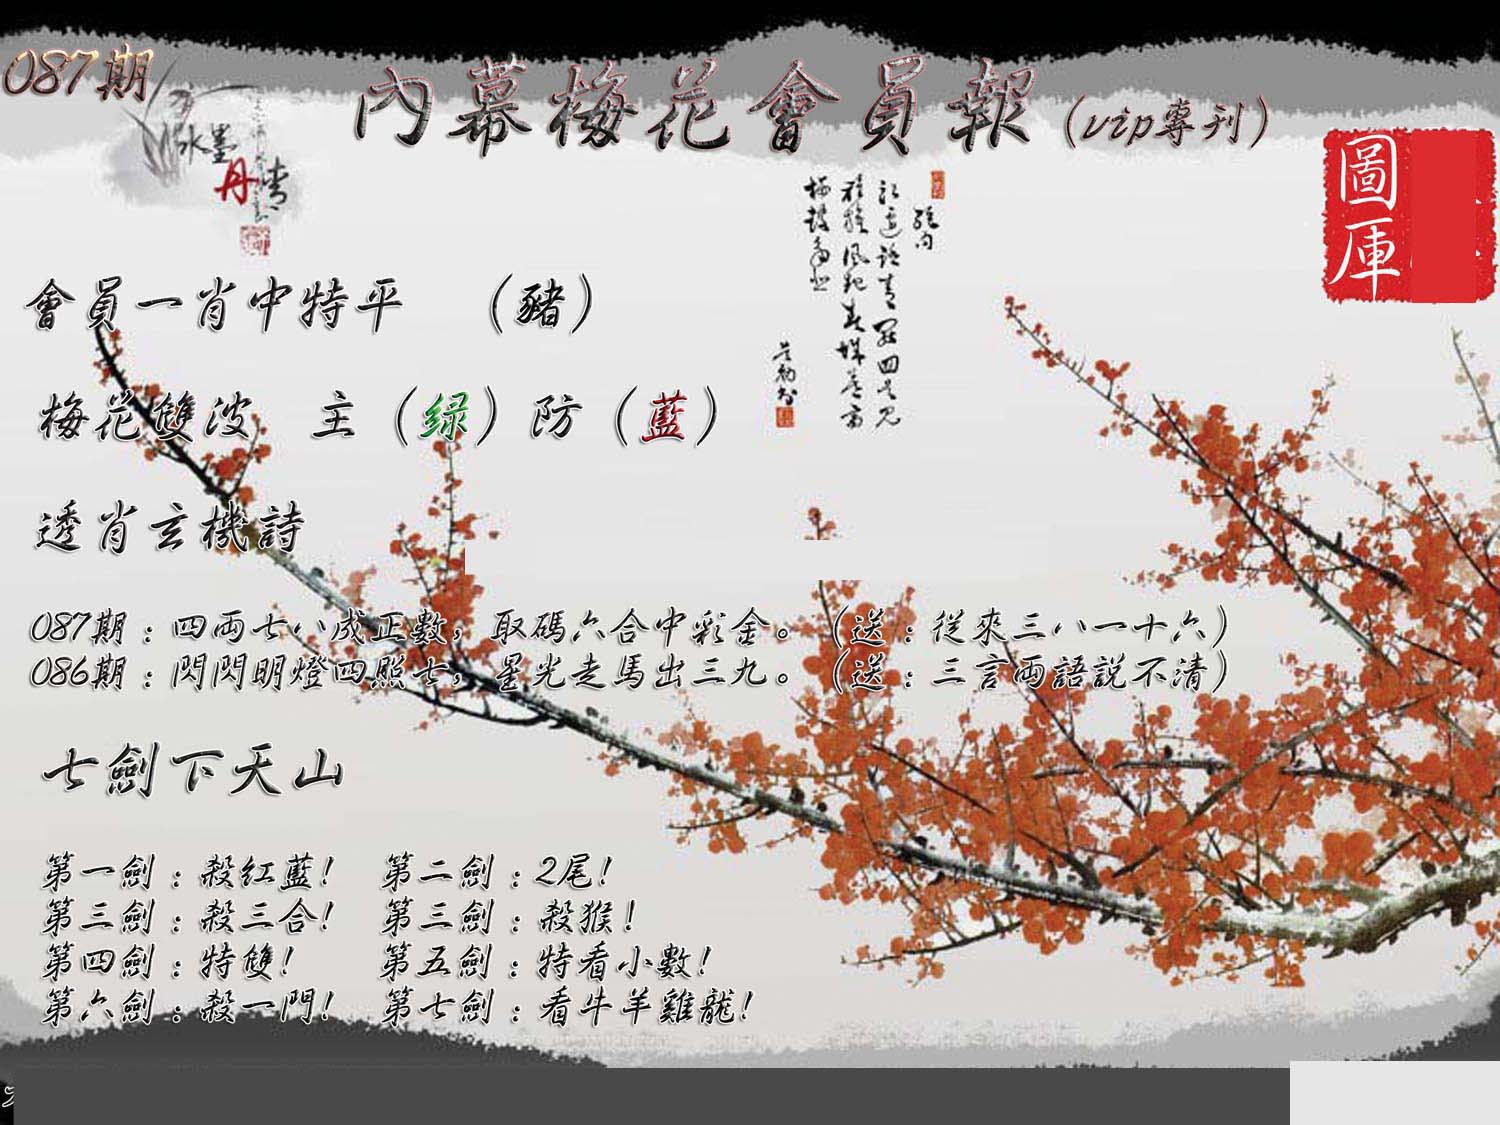 087期
內幕梅花會員報（vip專刊）
水墨
丹青
圖庫
會員一肖中特平　（豬）
梅花雙波　主（绿）防（藍）
透肖玄機詩
087期：四両七八成正數，取碼六合中彩金。（送：從來三八一十六）
086期：閃閃明燈四照七，星光走馬出三九。（送：三言両語説不清）
七劍下天山
第一劍：殺红藍！　第二劍：2尾！
第三劍：殺三合！　第三劍：殺猴！
第四劍：特雙！　第五劍：特看小數！
第六劍：殺一門！　第七劍：看牛羊雞龍！